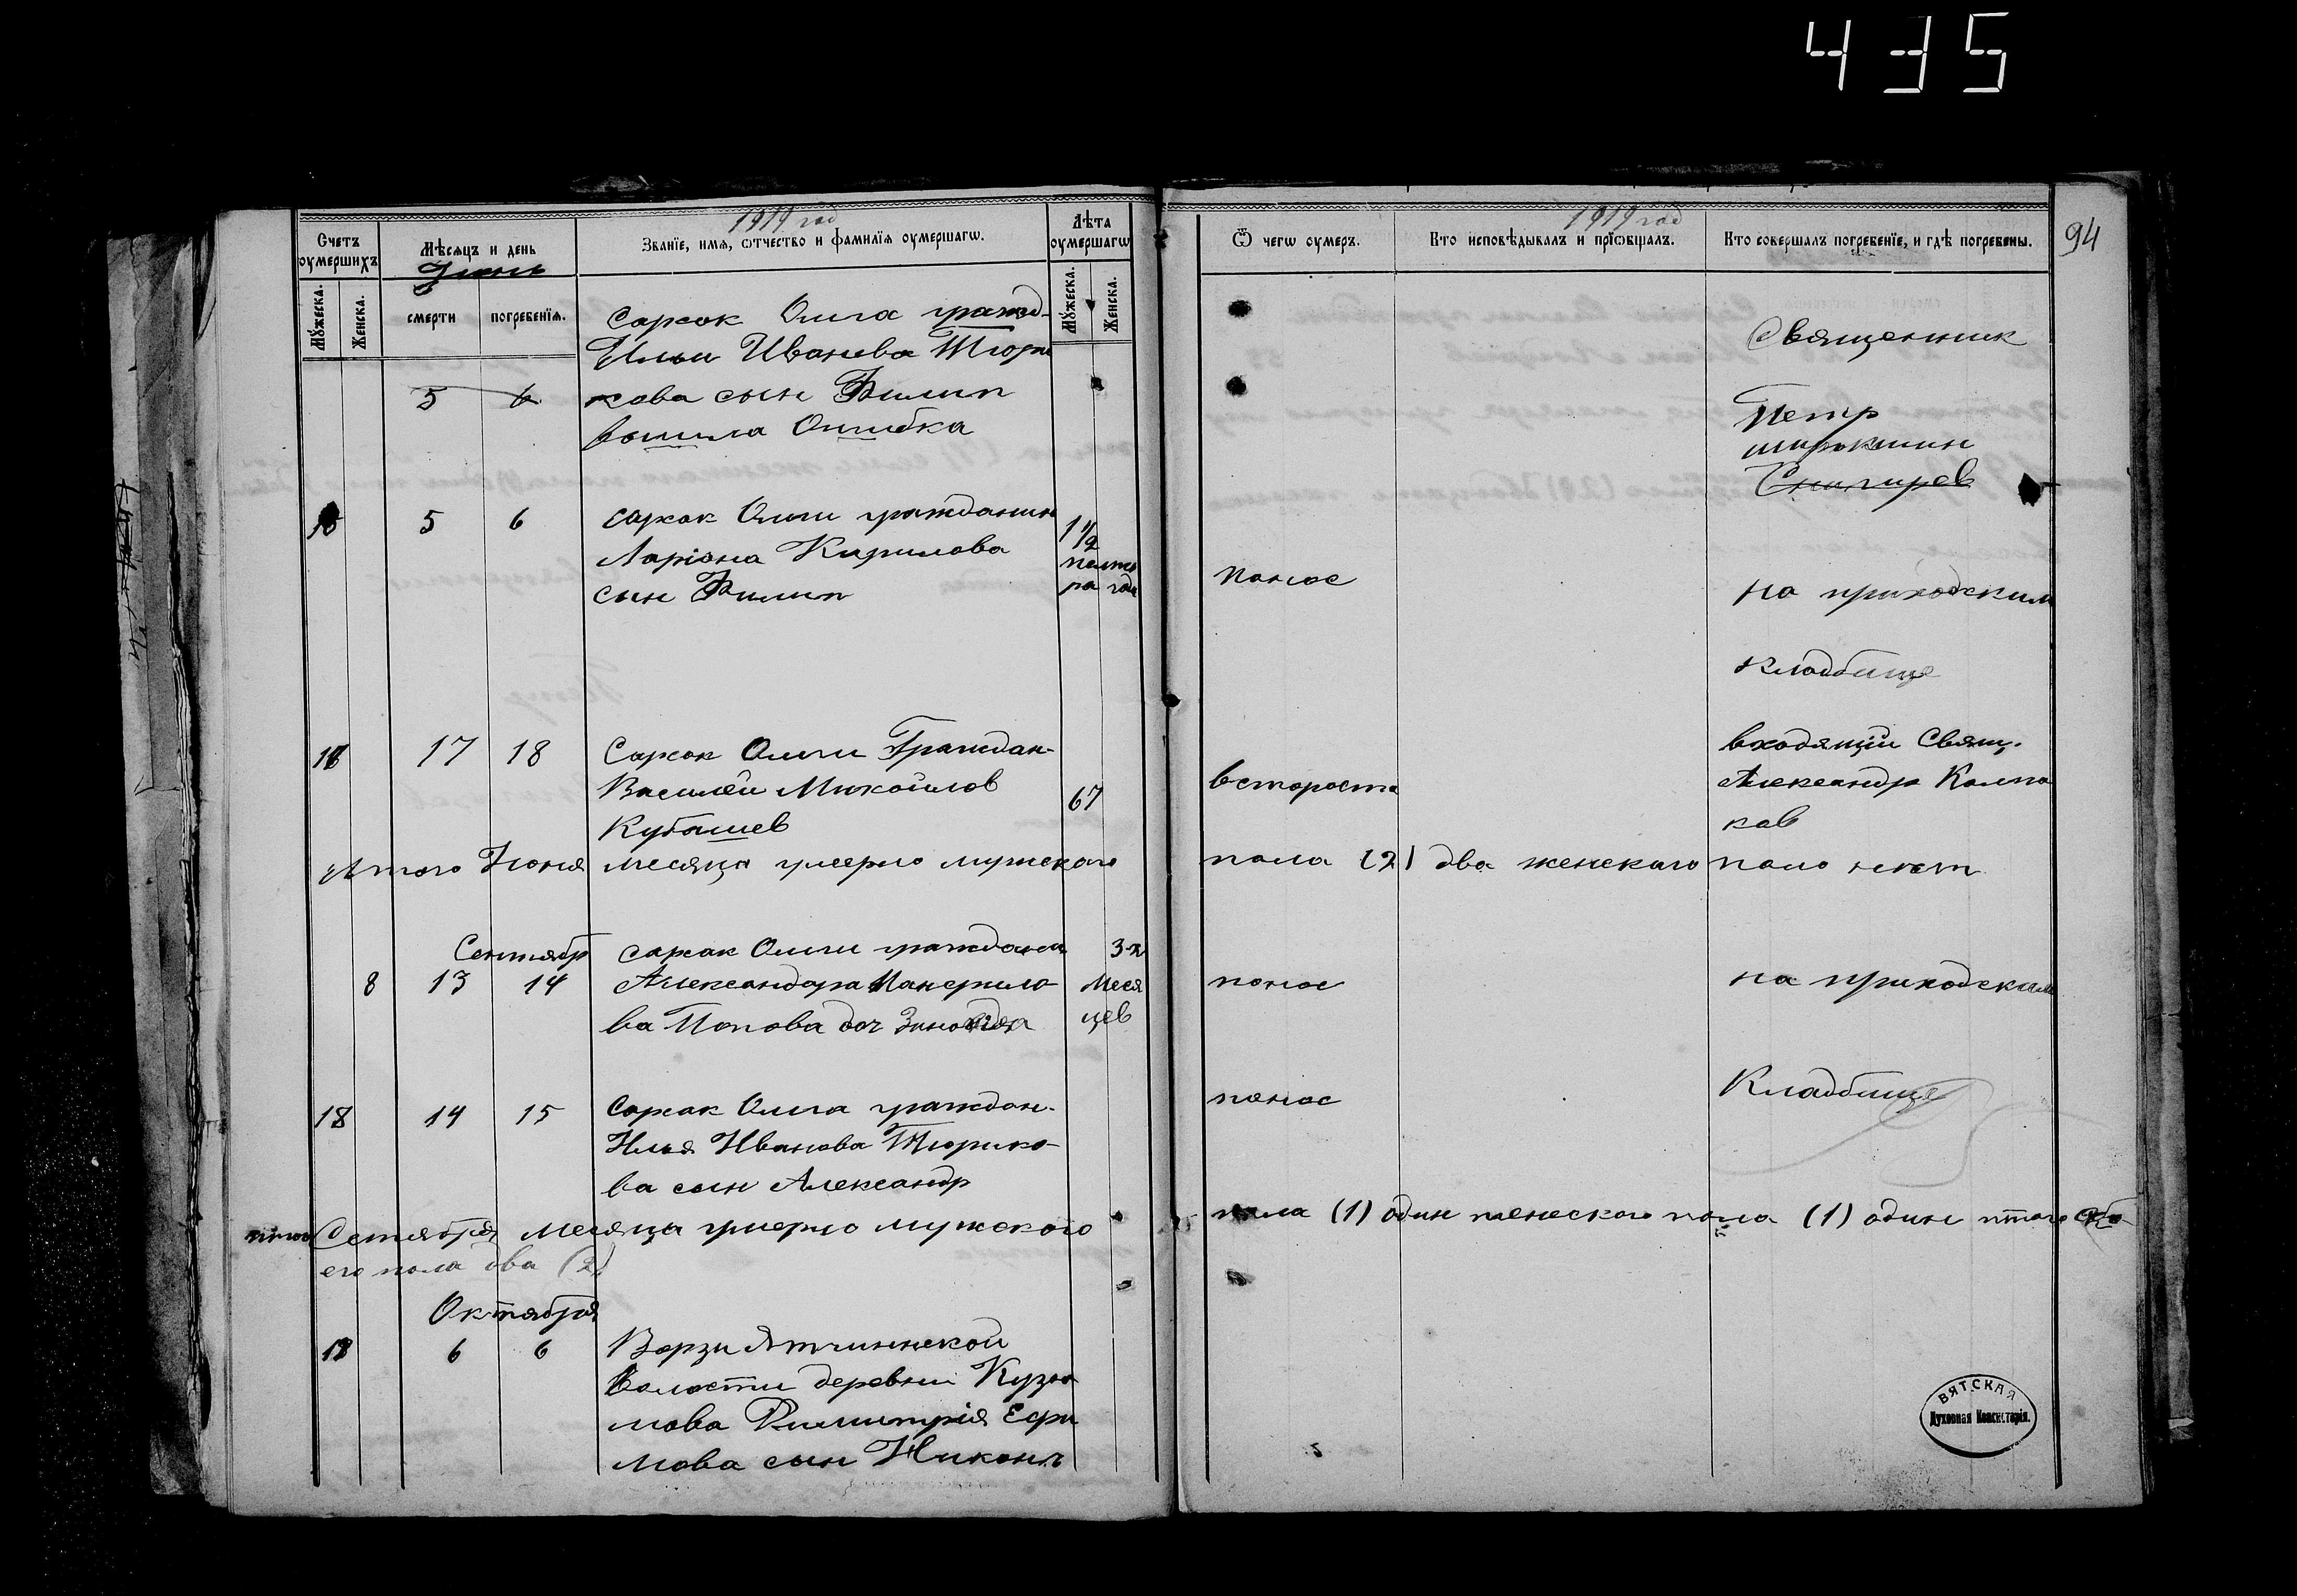 435
94
1919 год
Счетъ оумершихъ
Мѣсяцъ и день
Июнь
Званїе, имя, ѿтчество и фамилїя оумершагѡ.
Лѣта оумершагѡ
Мꙋжеска.
Женска.
смерти
погребенїя.
Мꙋжеска.
Женска.
сарсак Омга гражд-
Ильи Иванова Тюри
5 6 кова сын Филип
вышла Ошибка
5 6 сарсак Омги гражданин
Ларіона Кирилова
сын Филип
1 1/2
полто
ра года
17 18 Сарсак Омги Граждан-
Василей Микайлов
Кубашев
67
Итого Июня месяца умерло мужскаго
Сентябр
сарсак Омги граждани
8 13 14 Александра
ва Попова доч
3-х
меся
цев
18 14 15 Сарсак Омга граждан-
Илья Иванова Тюрико-
ва сын Александр
итого Сентября месяца умерло мужского
его пола два (2)
Октября
6 6 Варзи Ятчиннской
Волости деревни Кузю
мова Димитрія Ефи
мова сын Никонъ
1919 год
Ѿ чегѡ оумеръ.
Кто исповѣдывалъ и прїѡбщалъ.
Кто совершалъ погребенїе, и гдѣ погребены.
Священник
Петр
широкшин
Снигирев
понос
на приходским
кладбище
входящій Свящ.
Александр Колпа
ков
встароста
пола (2) два женскаго поло нет
понос
на приходским
понос
Кладбище
пола (1) один женского пола (1) один итого обо
ВЯТСКАЯ
Духовная Консисторія.